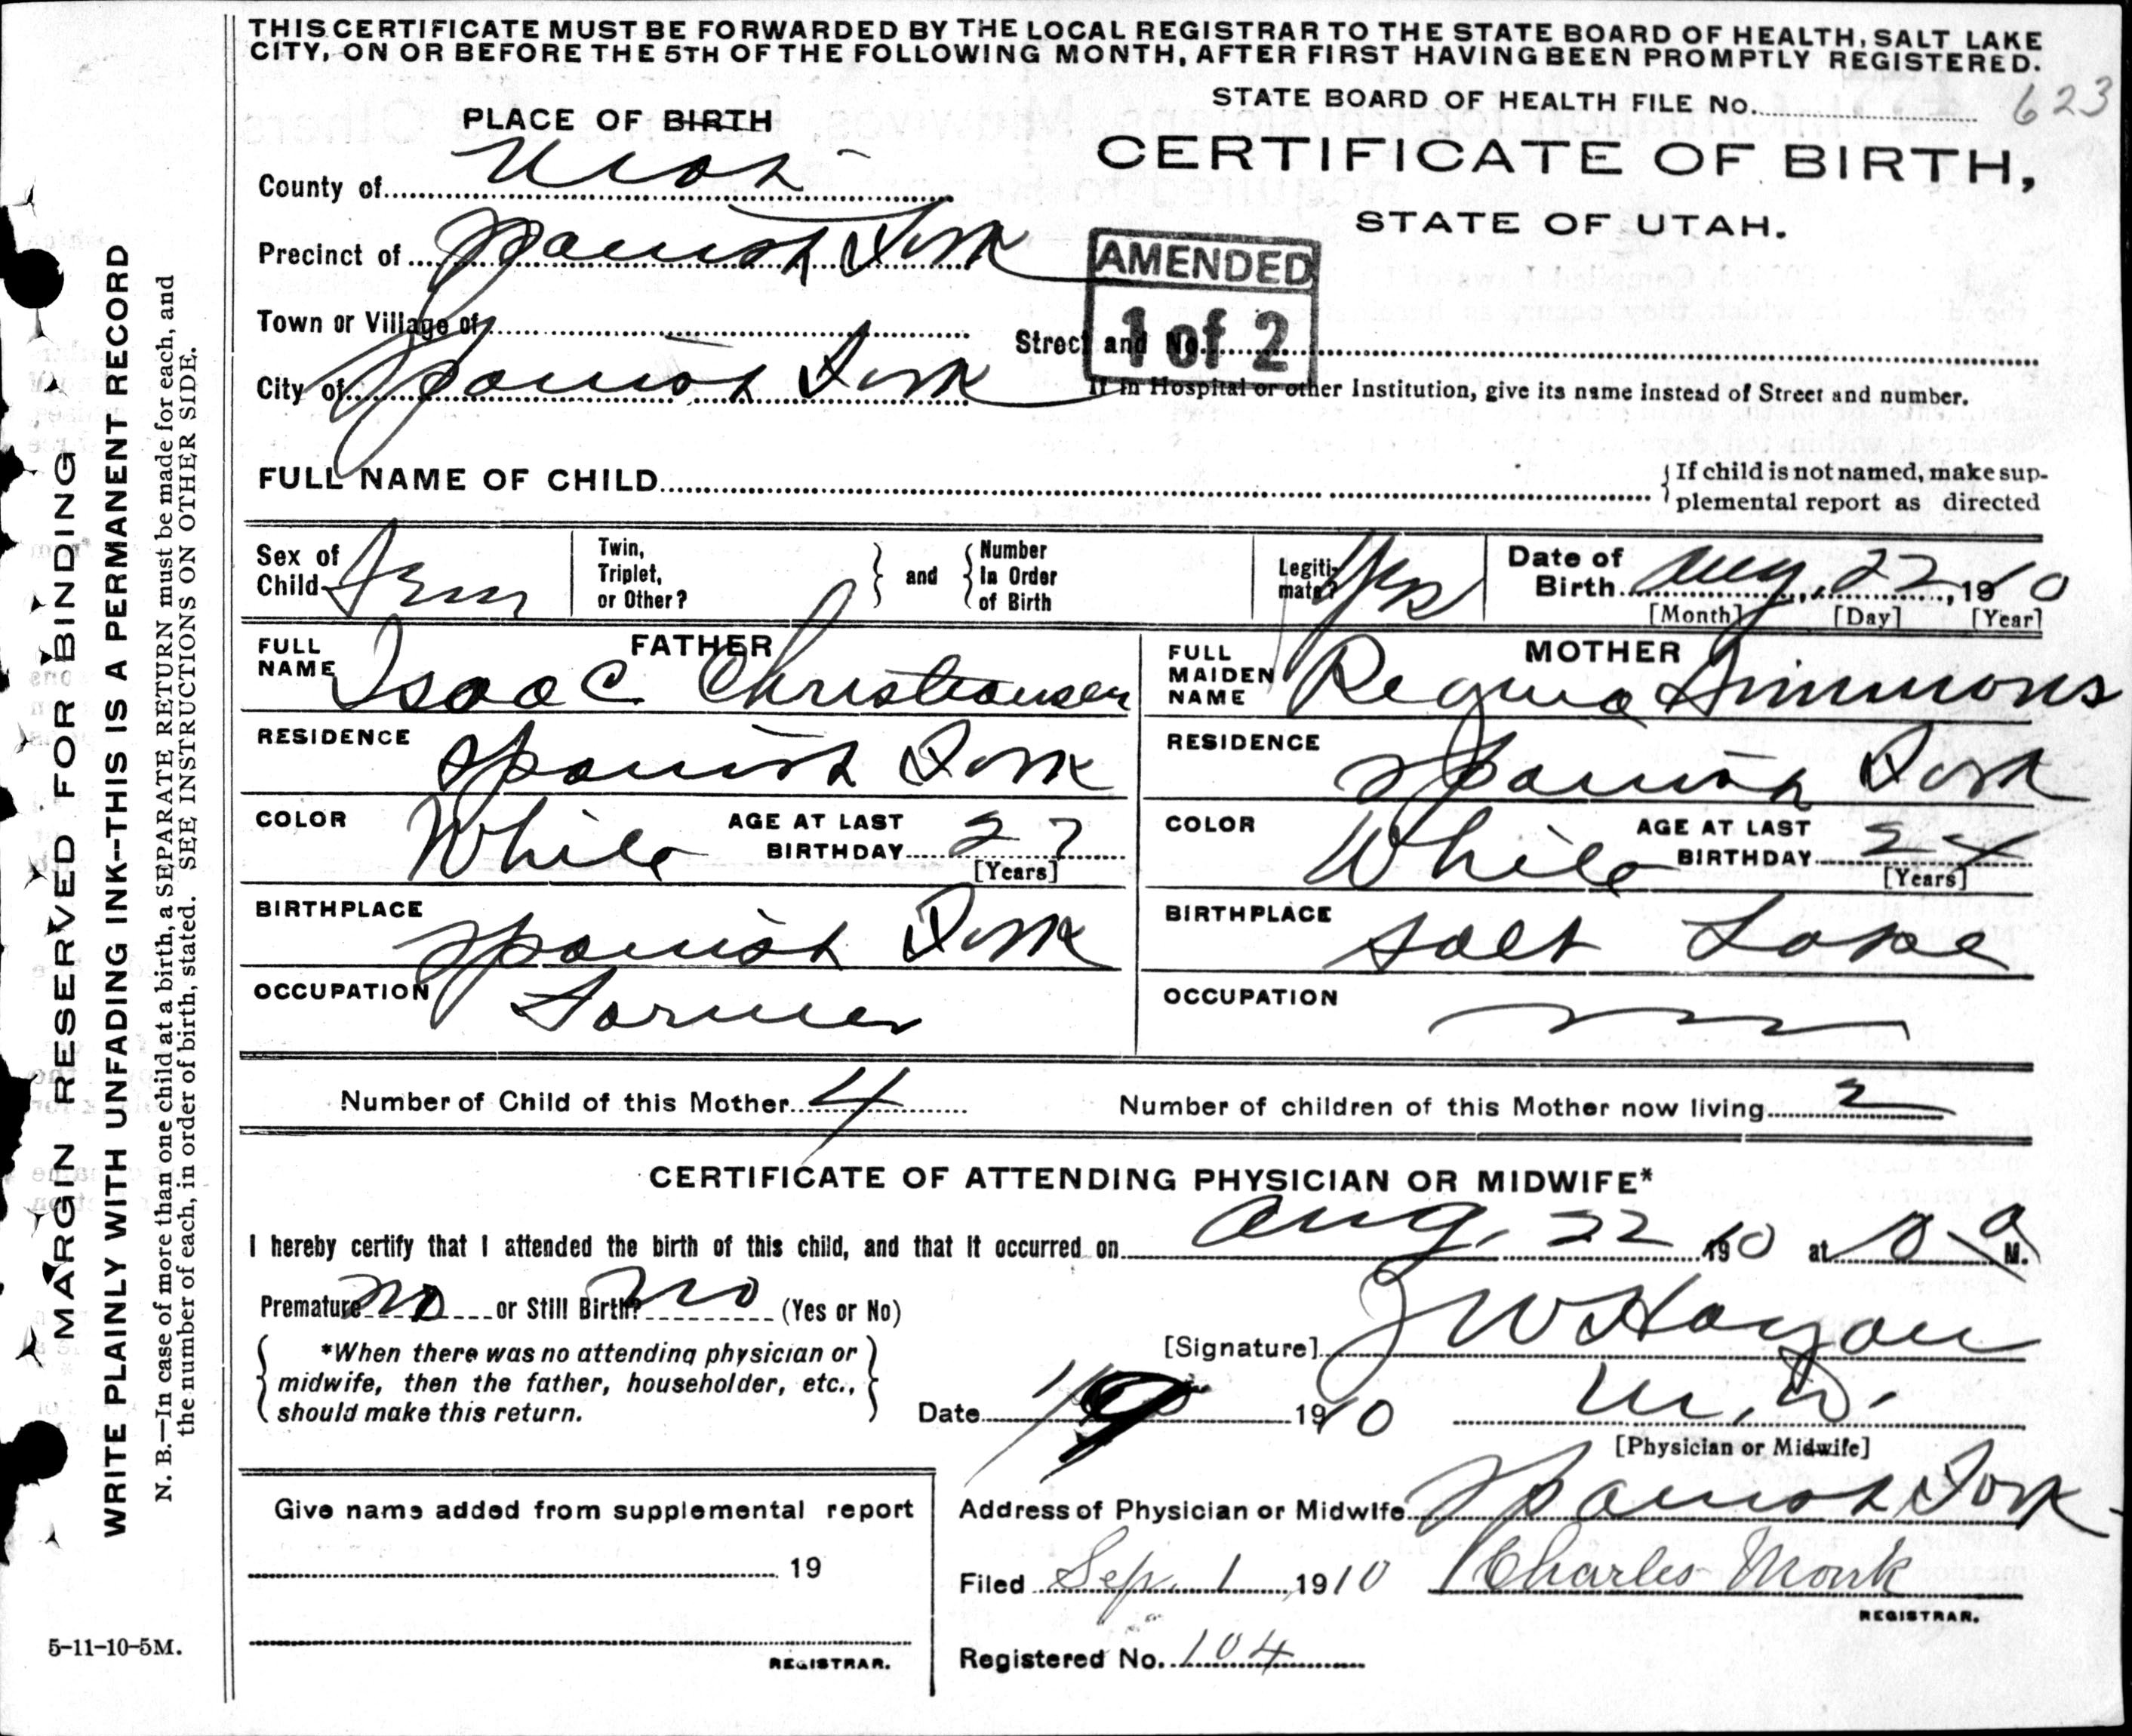 THIS CERTIFICATE MUST BE FORWARDED BY THE LOCAL REGISTRAR TO THE STATE BOARD OF HEALTH, SALT LAKE
CITY, ON OR BEFORE THE 5TH OF THE FOLLOWING MONTH, AFTER FIRST HAVING BEEN PROMPTLY REGISTERED.
STATE BOARD OF HEALTH FILE No. 623
PLACE OF BIRTH
CERTIFICATE OF BIRTH,
STATE OF UTAH.
County of Utah
Precinct of Spanish Fork
AMENDED
1 of 2
Town or Village of
Street and No.
City of Spanish Fork
If in Hospital or other Institution, give its name instead of Street and number.
FULL NAME OF CHILD
If child is not named, make sup-
plemental report as directed
Sex of Child Fem
Twin, Triplet, or Other?
and
Number In Order of Birth
Legiti-mate? Yes
Date of Birth Aug. 22, 1910
[Month] [Day] [Year]
FATHER
FULL NAME Isaac Christensen
MOTHER
FULL MAIDEN NAME Regina Simmons
RESIDENCE Spanish Fork
RESIDENCE Spanish Fork
COLOR White AGE AT LAST BIRTHDAY 27 [Years]
COLOR White AGE AT LAST BIRTHDAY 24 [Years]
BIRTHPLACE Spanish Fork
BIRTHPLACE Salt Lake
OCCUPATION Farmer
OCCUPATION
Number of Child of this Mother 4
Number of children of this Mother now living 2
CERTIFICATE OF ATTENDING PHYSICIAN OR MIDWIFE*
I hereby certify that I attended the birth of this child, and that it occurred on Aug. 22 1910 at 10 a M.
Premature no or Still Birth? no (Yes or No)
*When there was no attending physician or
midwife, then the father, householder, etc.,
should make this return.
[Signature] J W Hagan
Date 1910
M.D.
[Physician or Midwife]
Address of Physician or Midwife Spanish Fork
Filed Sep. 1 1910 Charles Monk
REGISTRAR.
Registered No. 104
Give name added from supplemental report
19
REGISTRAR.
MARGIN RESERVED FOR BINDING
WRITE PLAINLY WITH UNFADING INK—THIS IS A PERMANENT RECORD
N. B.—In case of more than one child at a birth, a SEPARATE RETURN must be made for each, and
the number of each, in order of birth, stated. SEE INSTRUCTIONS ON OTHER SIDE.
5-11-10-5M.